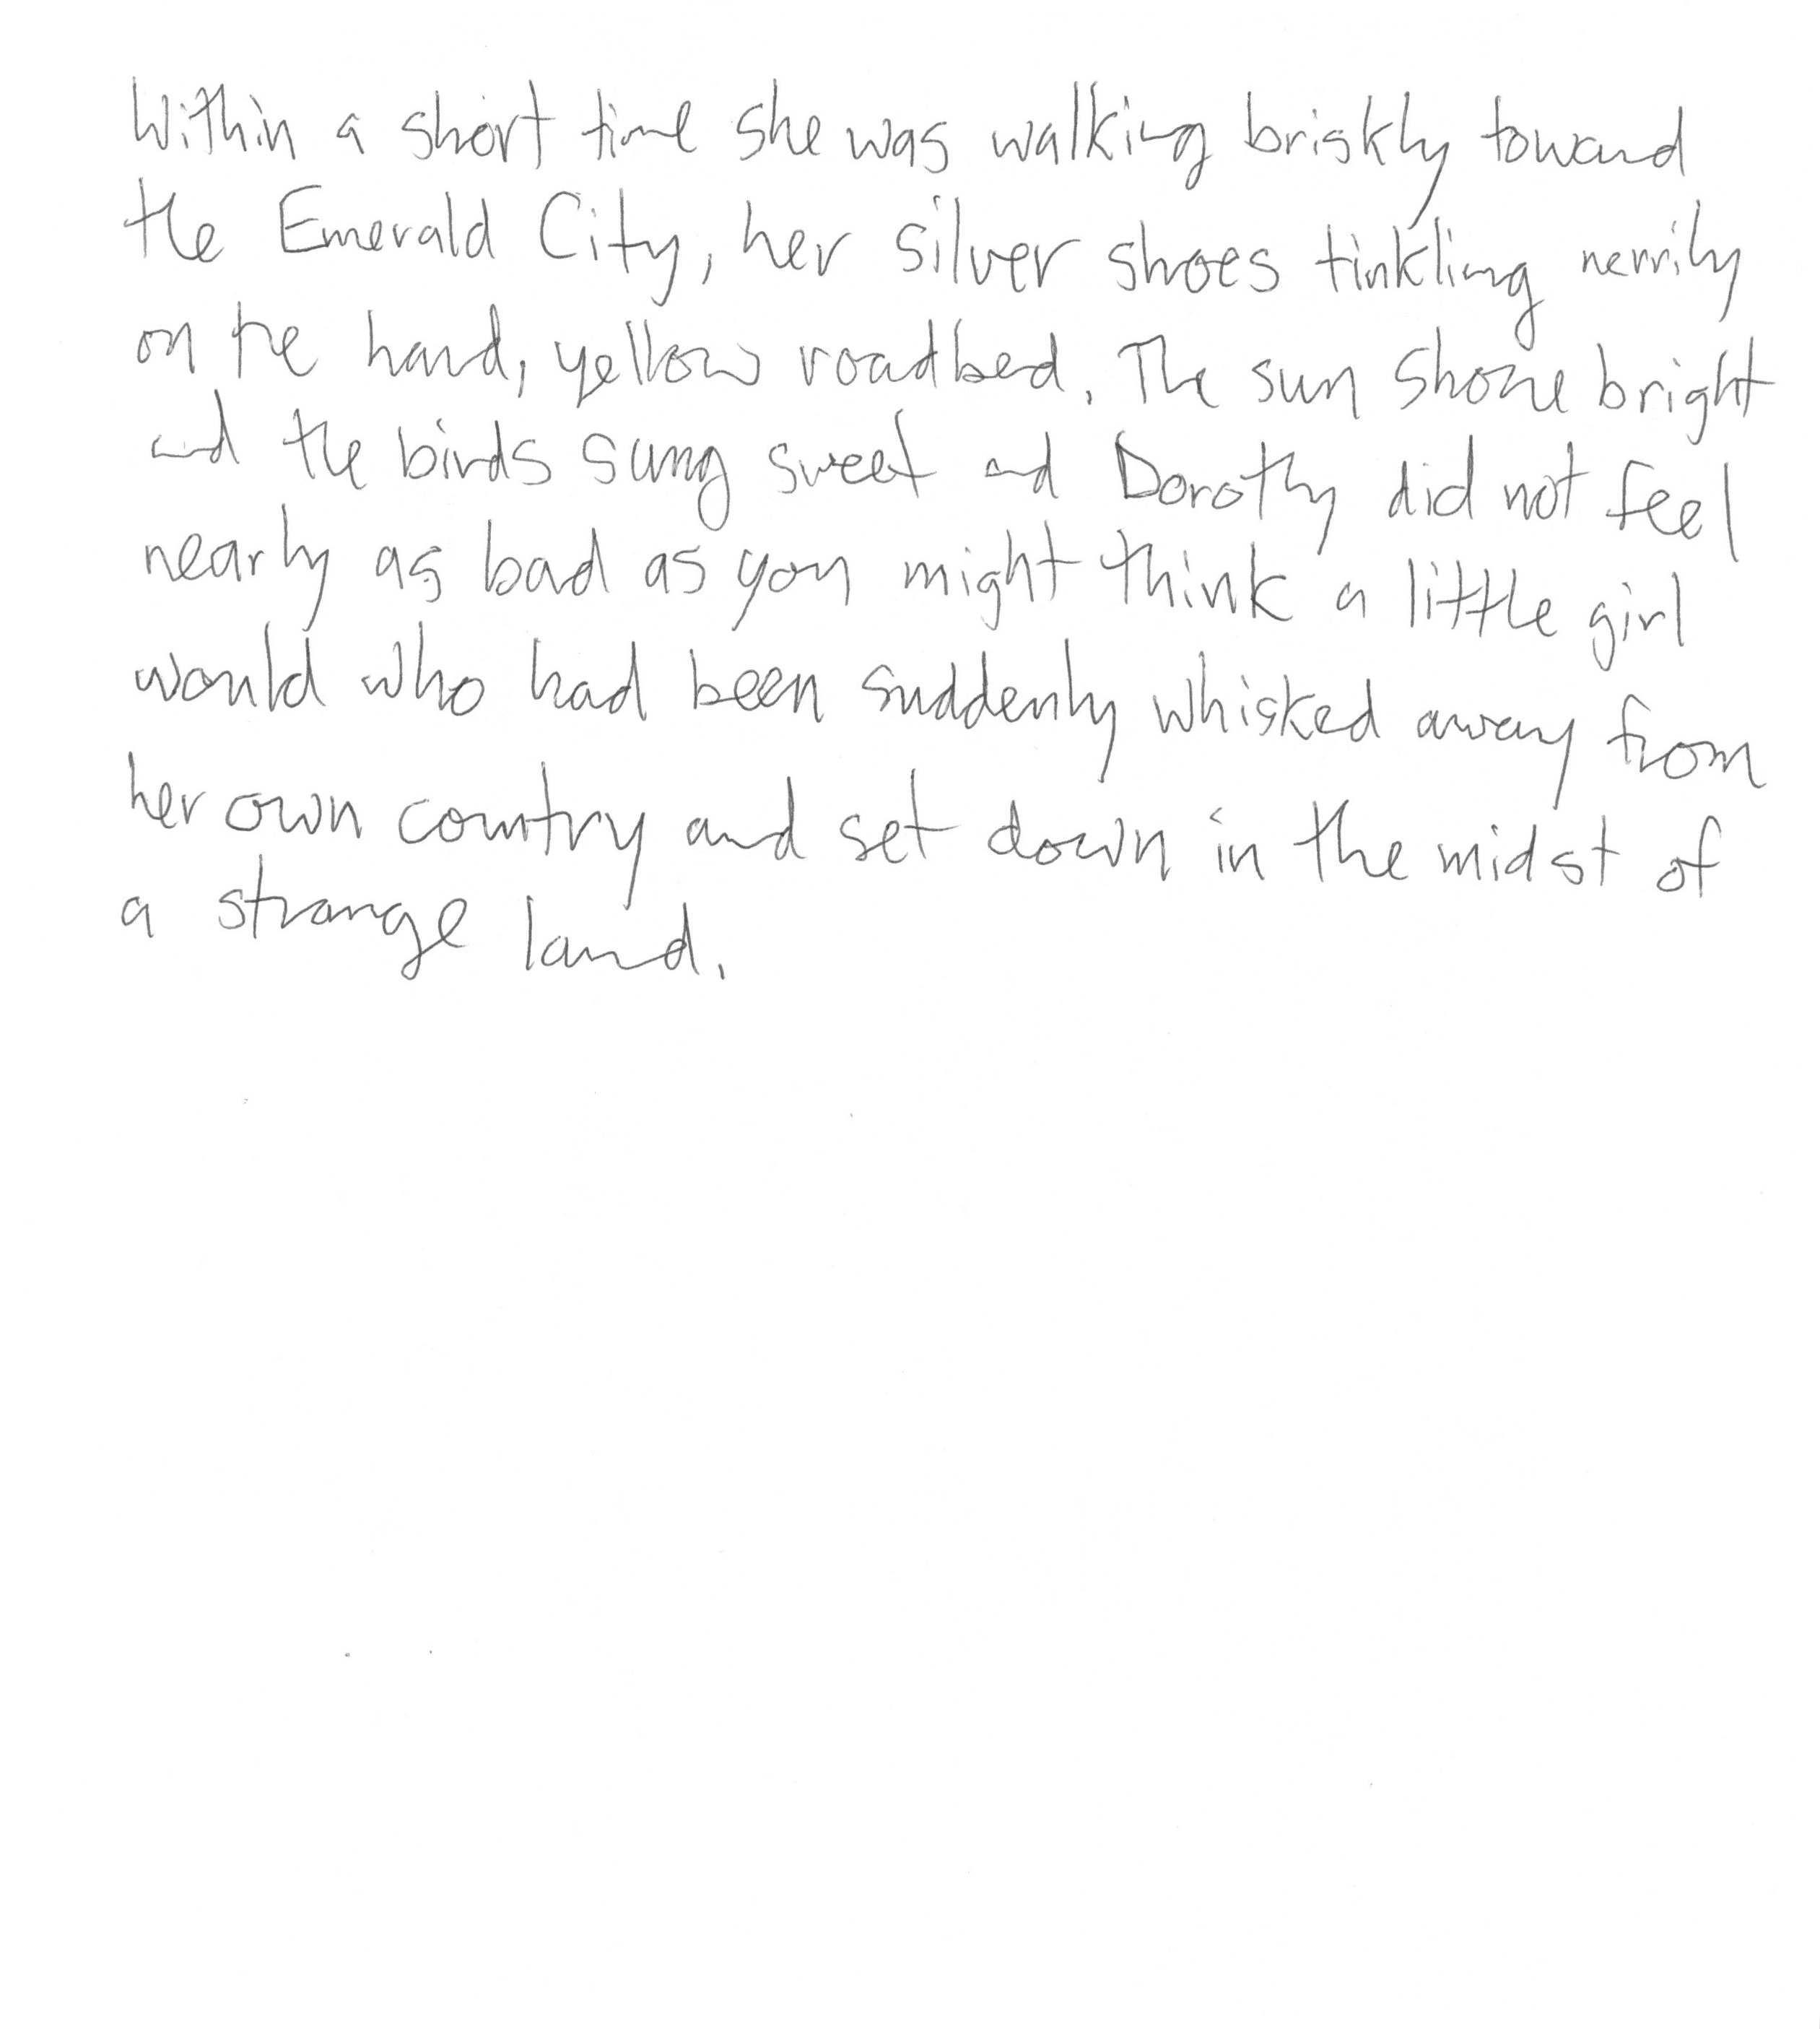 Within a short time she was walking briskly toward
the Emerald City, her silver shoes tinkling merrily
on the hard, yellow roadbed. The sun shone bright
and the birds sung sweet and Dorothy did not feel
nearly as bad as you might think a little girl
would who had been suddenly whisked away from
her own country and set down in the midst of
a strange land.